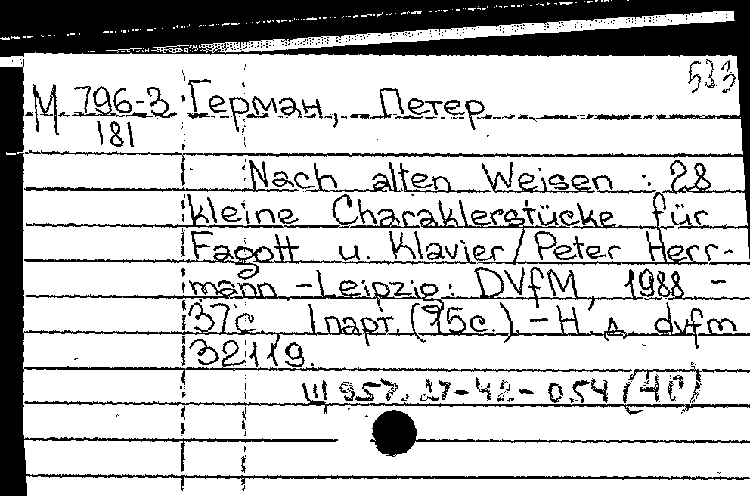 533
М 796-3 Герман, Петер
181
Nach alten Weisen : 28
kleine Charaklerstücke für
Fagott u. Klavier/Peter Herr-
mann -Leipzig: DVfM, 1988 -
37с 1парт. (15с.). - Н. д. dvfm
32119.
Щ 957. 27-42- 054 (4Г)